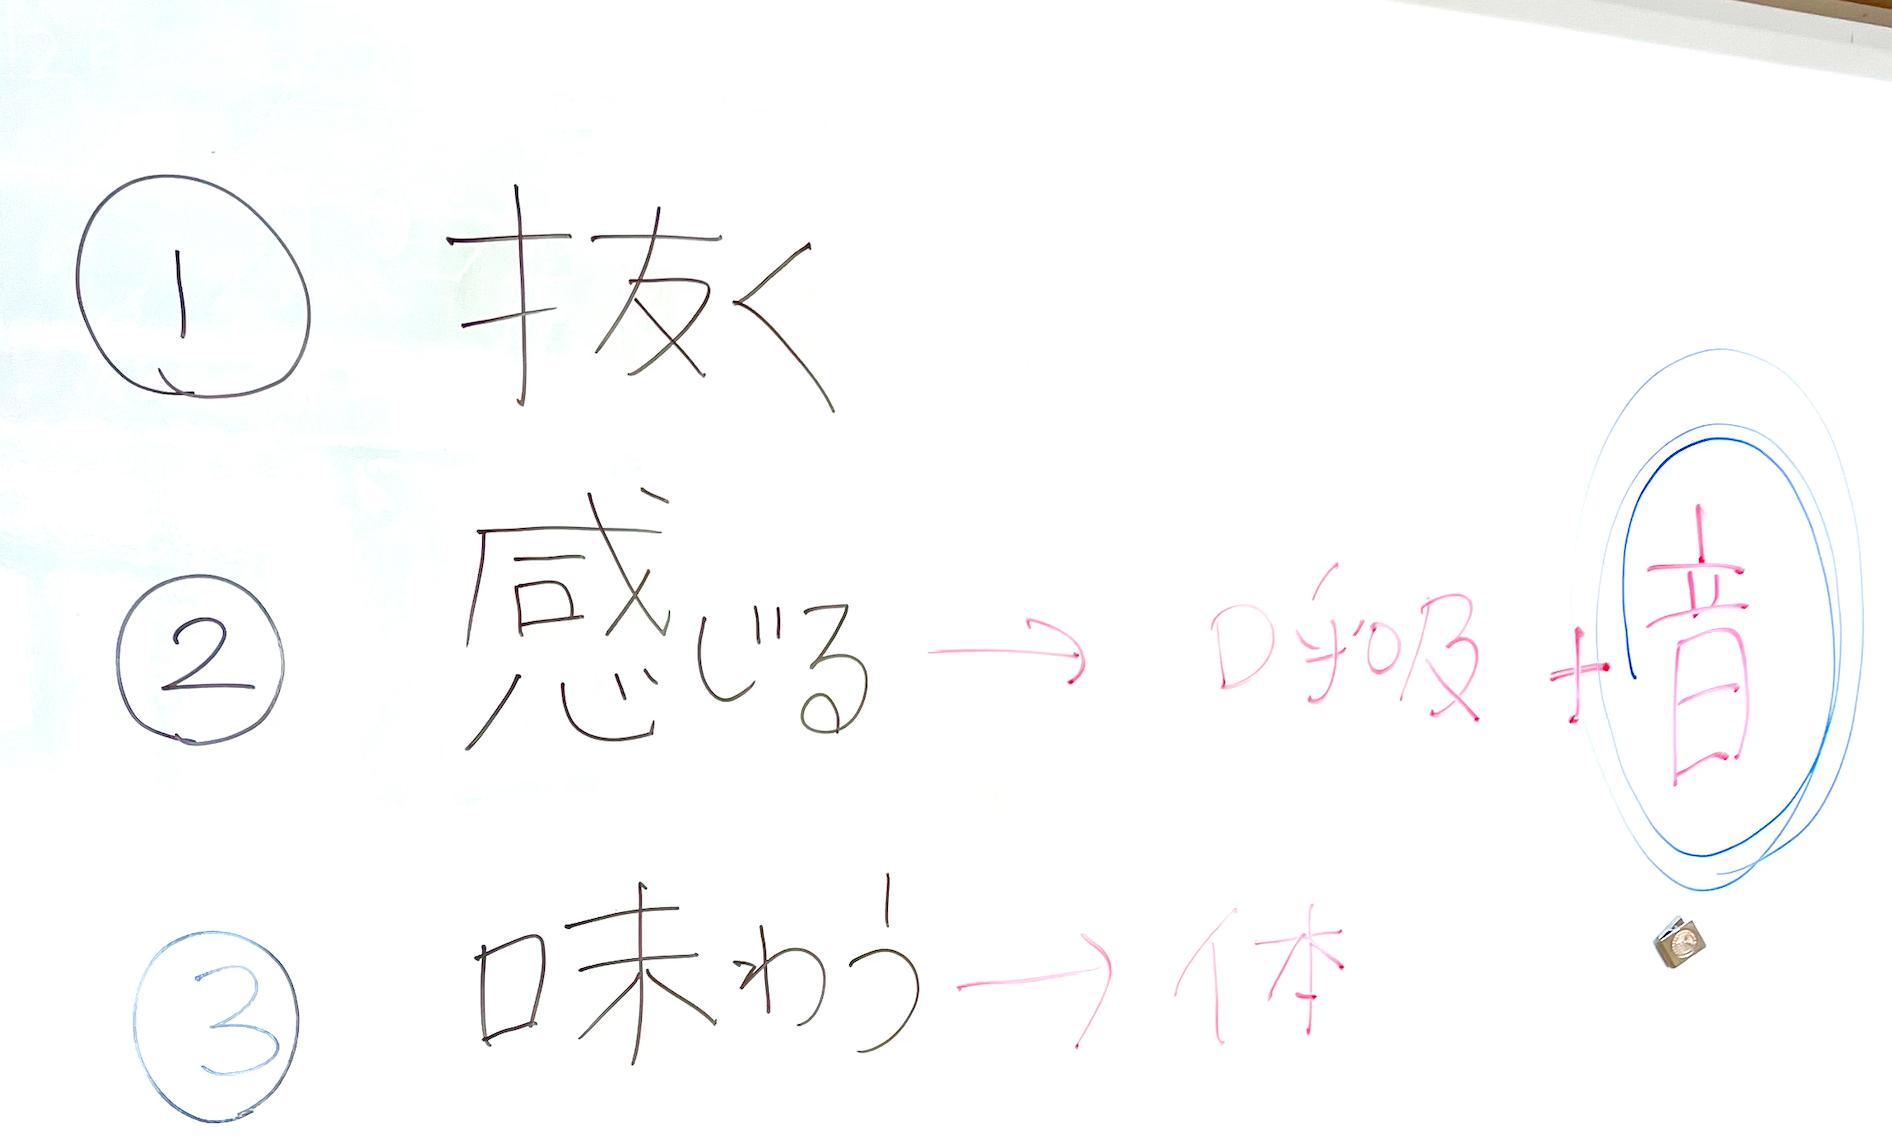 ① 抜く
② 感じる → 呼吸 + 音
③ 味わう → 体